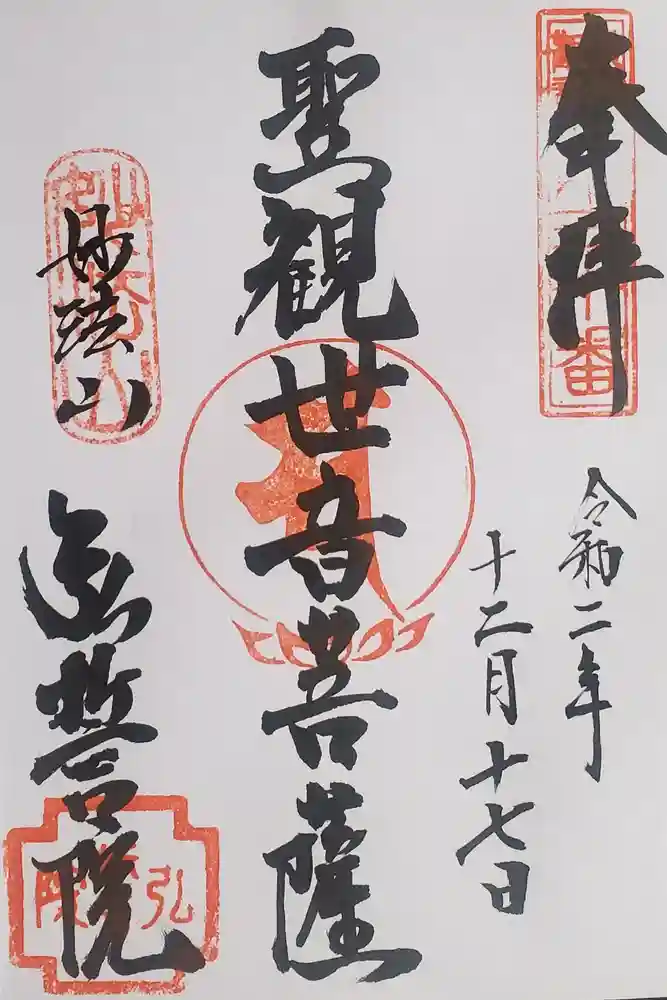 奉拝
令和二年
十二月十七日
聖観世音菩薩
妙法山
弘誓院